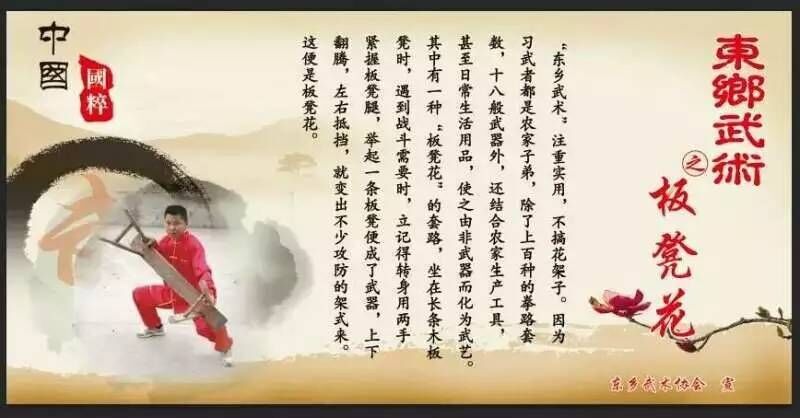 東鄉武術
之
板凳花
“东乡武术”注重实用，不搞花架子。因为
习武者都是农家子弟，除了上百种的拳路套
数，十八般武器外，还结合农家生产工具，
甚至日常生活用品，使之由非武器而化为武艺。
其中有一种“板凳花”的套路，坐在长条木板
凳时，遇到战斗需要时，立记得转身用两手
紧握板凳腿，举起一条板凳便成了武器，上下
翻腾，左右抵挡，就变出不少攻防的架式来。
这便是板凳花。
中國
國粹
东乡武术协会 宣